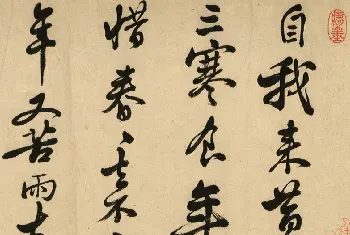 自我来黄
三寒食年
惜春〻去不
年又苦雨